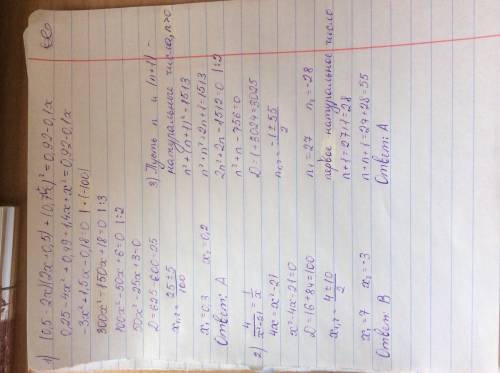 1) (0,5-2x)(2x+0,5)+(0,7+x)²=0,92-0,1x
0,25-4x²+0,49+1,4x+x²=0,92-0,1x
-3x²+1,5x-0,18=0 |·(-100)
300x²-150x+18=0 |:3
100x²-50x+6=0 |:2
50x²-25x+3=0
D=625-600=25
x₁,₂=(25±5)/100
x₁=0,3 x₂=0,2
Ответ: А
2) 4/(x²-21)=1/x
4x=x²-21
x²-4x-21=0
D=16+84=100
x₁,₂=(4±10)/2
x₁=7 x₂=-3
Ответ: В
3) Пусть n и (n+1) -
натуральные числа, n>0
n²+(n+1)²=1513
n²+n²+2n+1=1513
2n²+2n-1512=0 |:2
n²+n-756=0
D=1+3024=3025
n₁,₂=(-1±55)/2
n₁=27 n₂=-28
первое натуральное число
n+1=27+1=28
n+n+1=27+28=55
Ответ: А